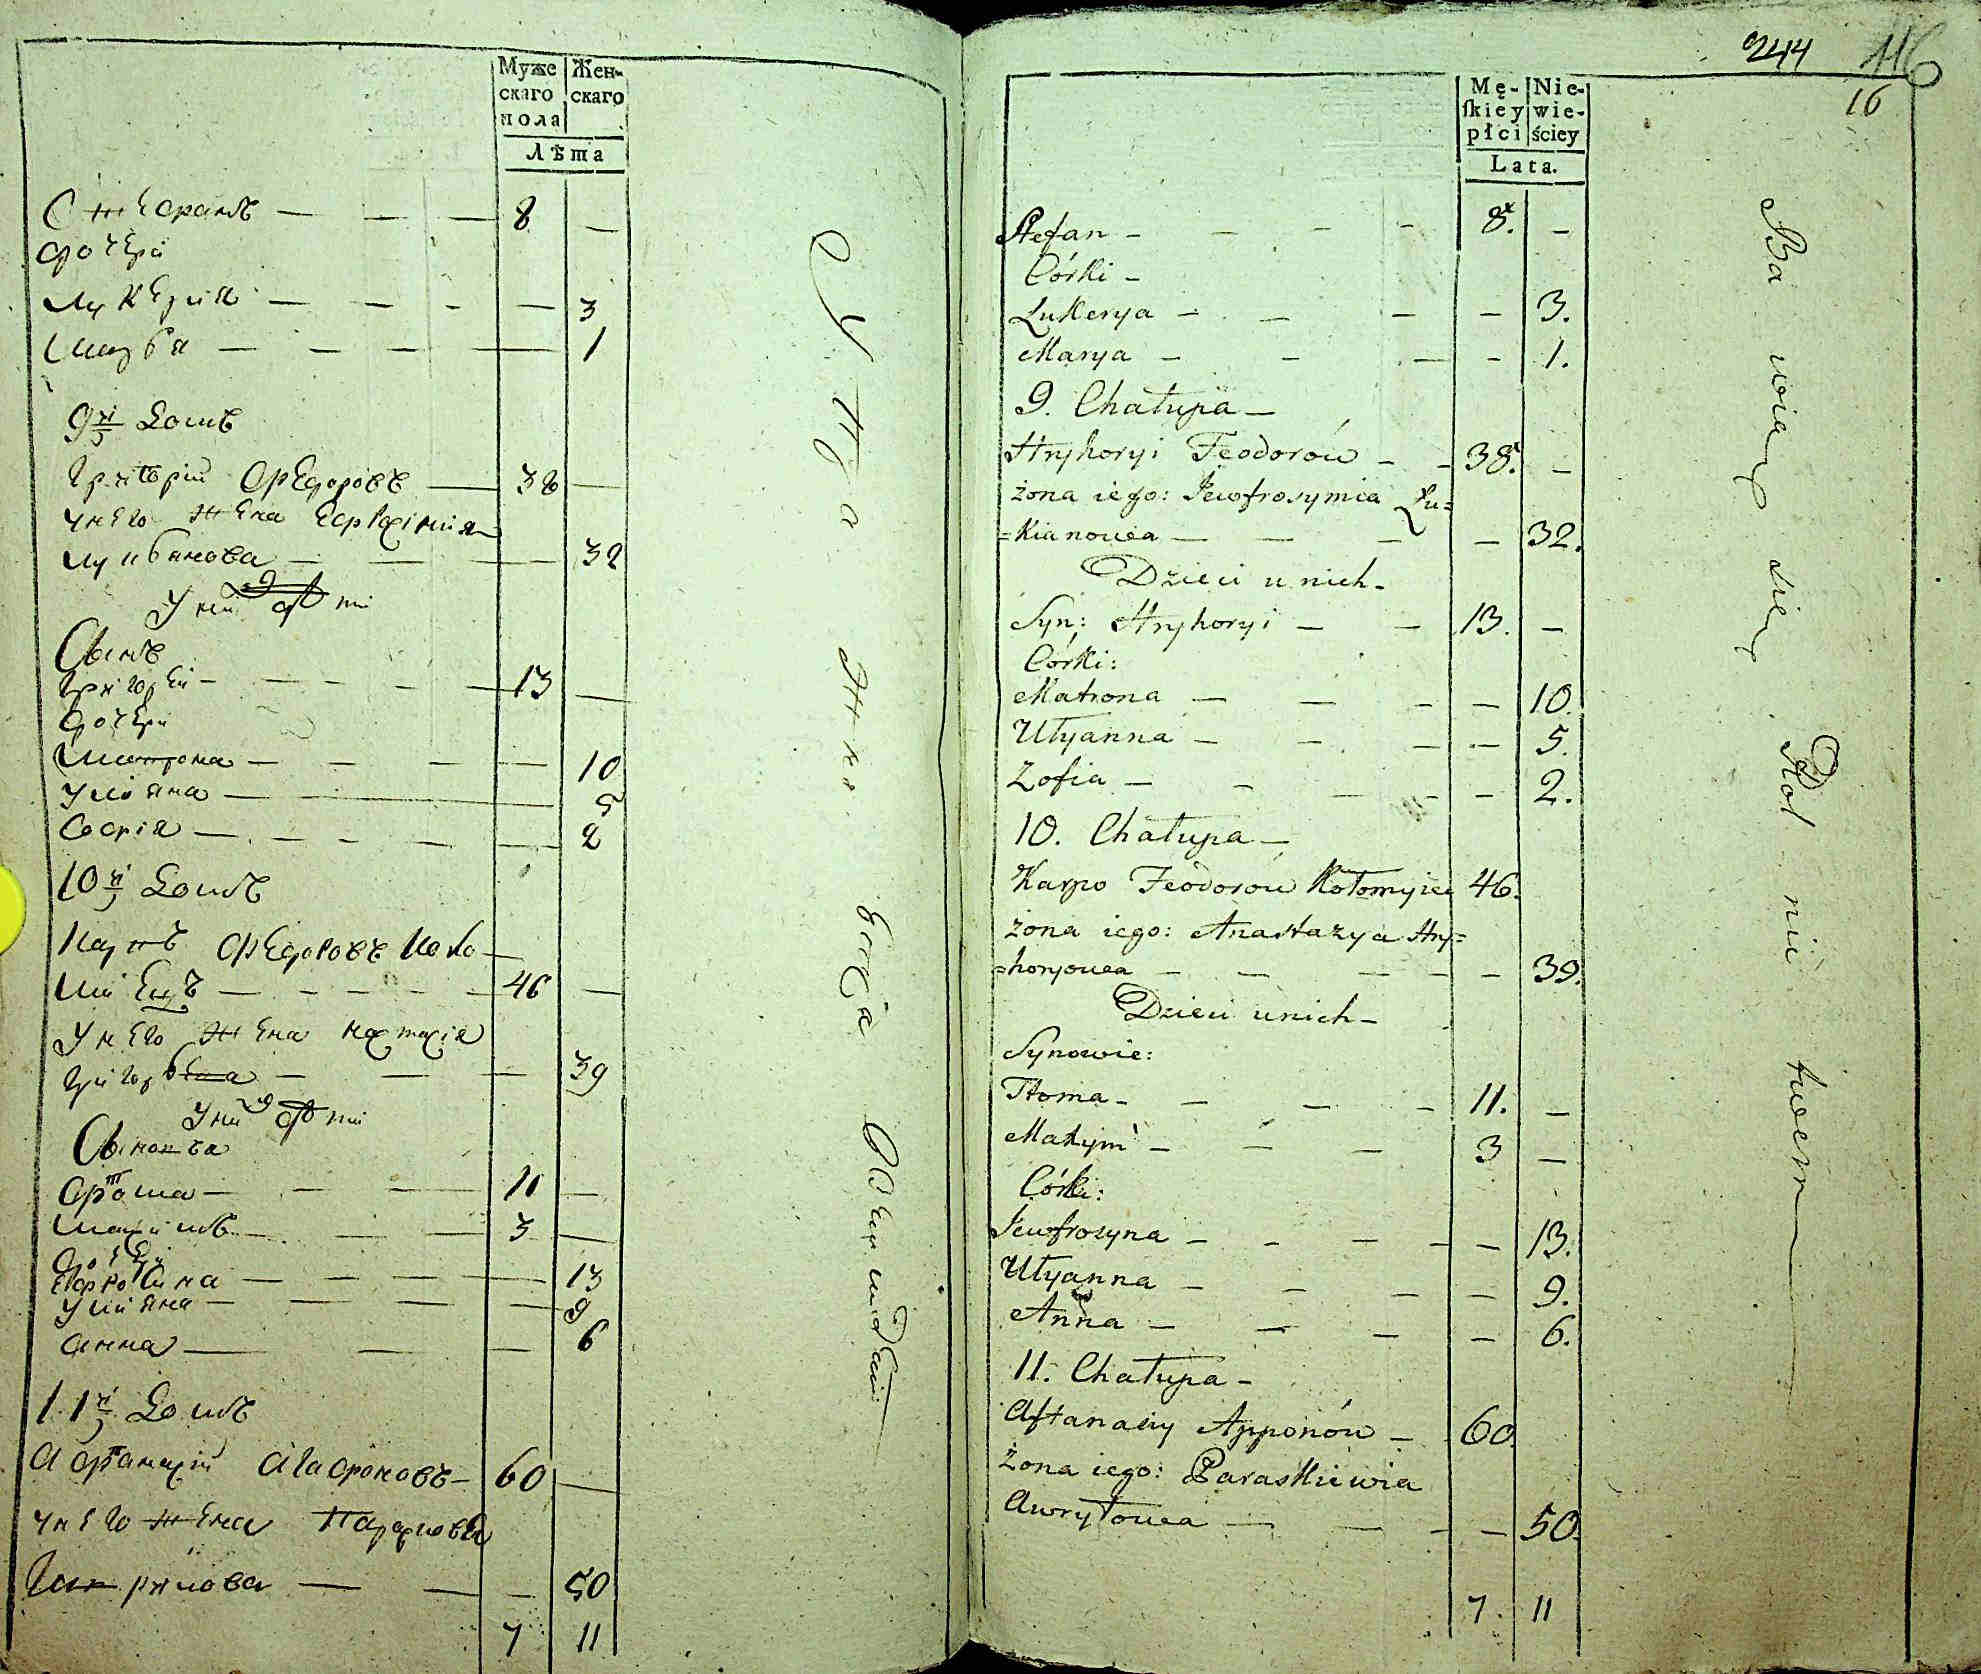 Муже
скаго
пола
Жен-
скаго
Лѣта
Стефанъ — — — 8 —
дочери
Лукерия — — — — 3
Марья — — — — 1
9й Домъ
Григорий Федоровъ — 38 —
у него жена
Лукьянова — — — 32
У них дети
Сынъ
Григорей — — — — 13 —
дочери
Матрона — — — — 10
Ульяна — — 5
Софія — — — — — 2
10й Домъ
Карпъ Федоровъ Коло —
міецъ — — — — — 46 —
У него жена Настасія
Григорьева — — — 39
У них дети
Сыновья
Фтома — — — 11 —
Максимъ — — — 3 —
дочери
Ефросина — — — — — 13
Ульяна — — — — 9
Анна — — — 6
11й Домъ
Афтанасій Агафоновъ — 60 —
у него жена
— — — 50
7 11
Сутки Владеній
244 116
16
Mę-
skiey
płci
Nie-
wie-
ściey
Lata.
Stefan — — — — 8. —
Córki —
Łukerya — — — — 3.
Marya — — — — 1.
9. Chałupa —
Hryhoryi Feodorów — — 38. —
żona iego: Jewfrosymia Łu=
=kianowa — — — — 32.
Dzieci u nich —
Syn: Hryhoryi — — 13. —
Córki:
Matrona — — — — 10.
Ulyanna — — — — 5.
Zofia — — — — — 2.
10. Chałupa —
Karpo Feodorów Kołomyiec 46.
żona iego: Anastazya Hry=
=horjowa — — — — — 39.
Dzieci u nich —
Synowie:
Tłoma — — — — 11. —
Maxym — — — 3 —
Córki:
Jewfrosyna — — — — — 13.
Ulyanna — — — — 9.
Anna — — — — 6.
11. Chałupa —
Aftanasiy Apponów — 60.
żona iego: Paraskiewia
Awryłowa — — — — 50.
7. 11